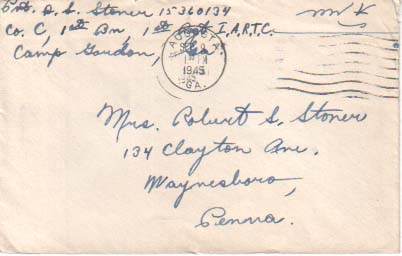 Pvt. D. S. Stoner 15360134
Co. C, 1st Bn, 1st Regt I.A.R.T.C.
Camp Gordon, Ga.
AUGUSTA
1945
GA.
Mrs. Robert S. Stoner
134 Clayton Ave.
Waynesboro,
Penna.